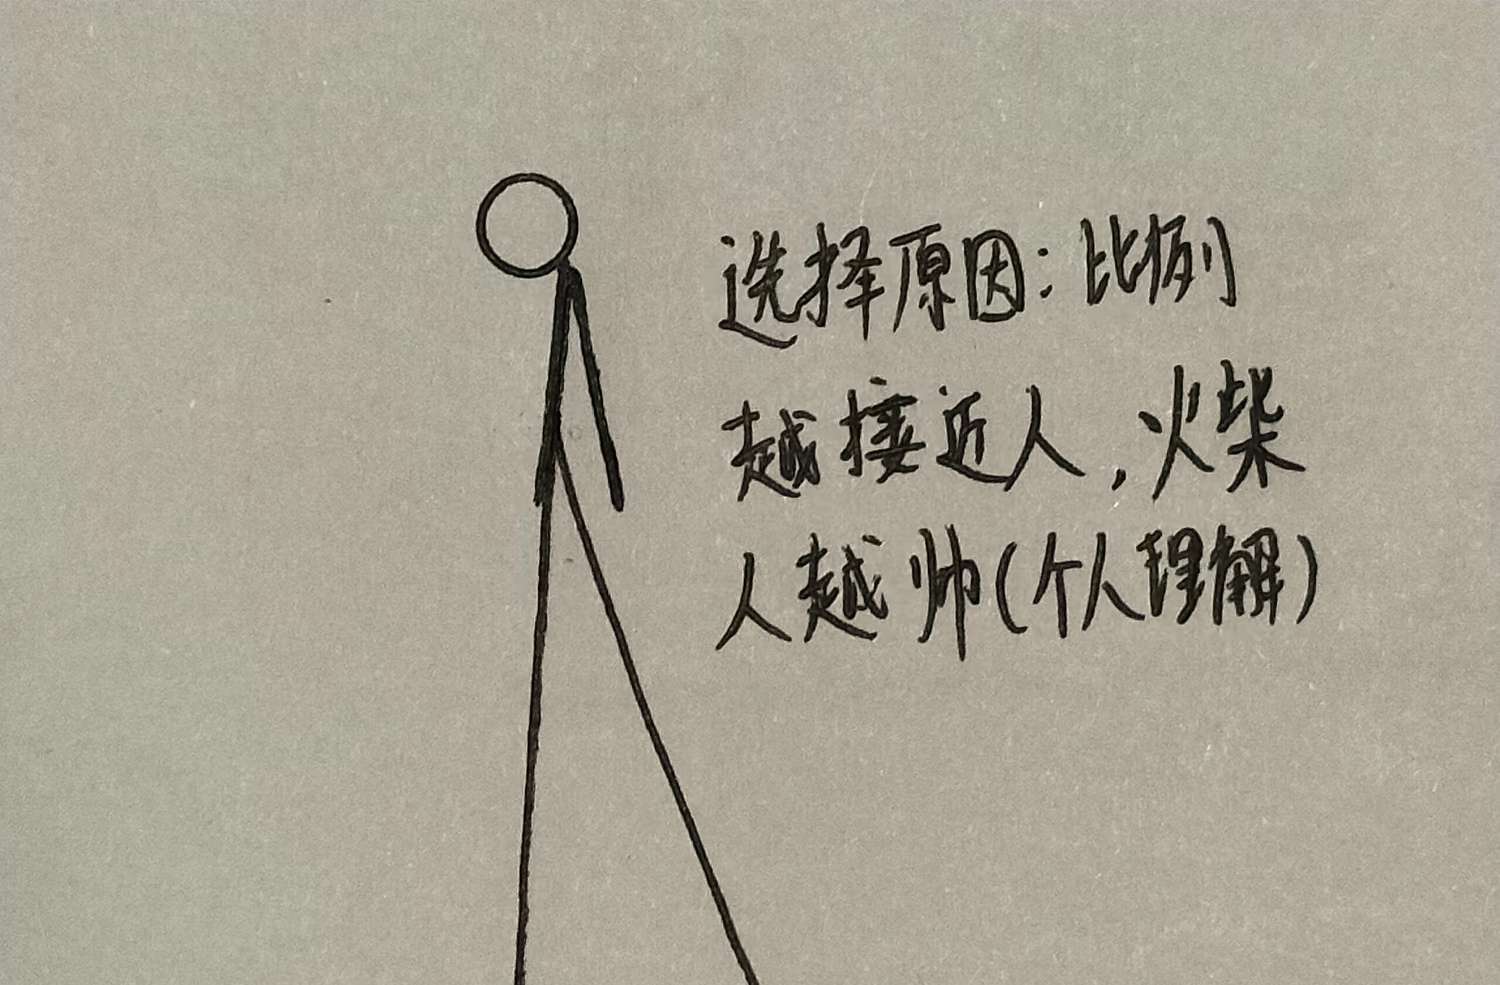 选择原因:比例
越接近人,火柴
人越帅(个人理解)